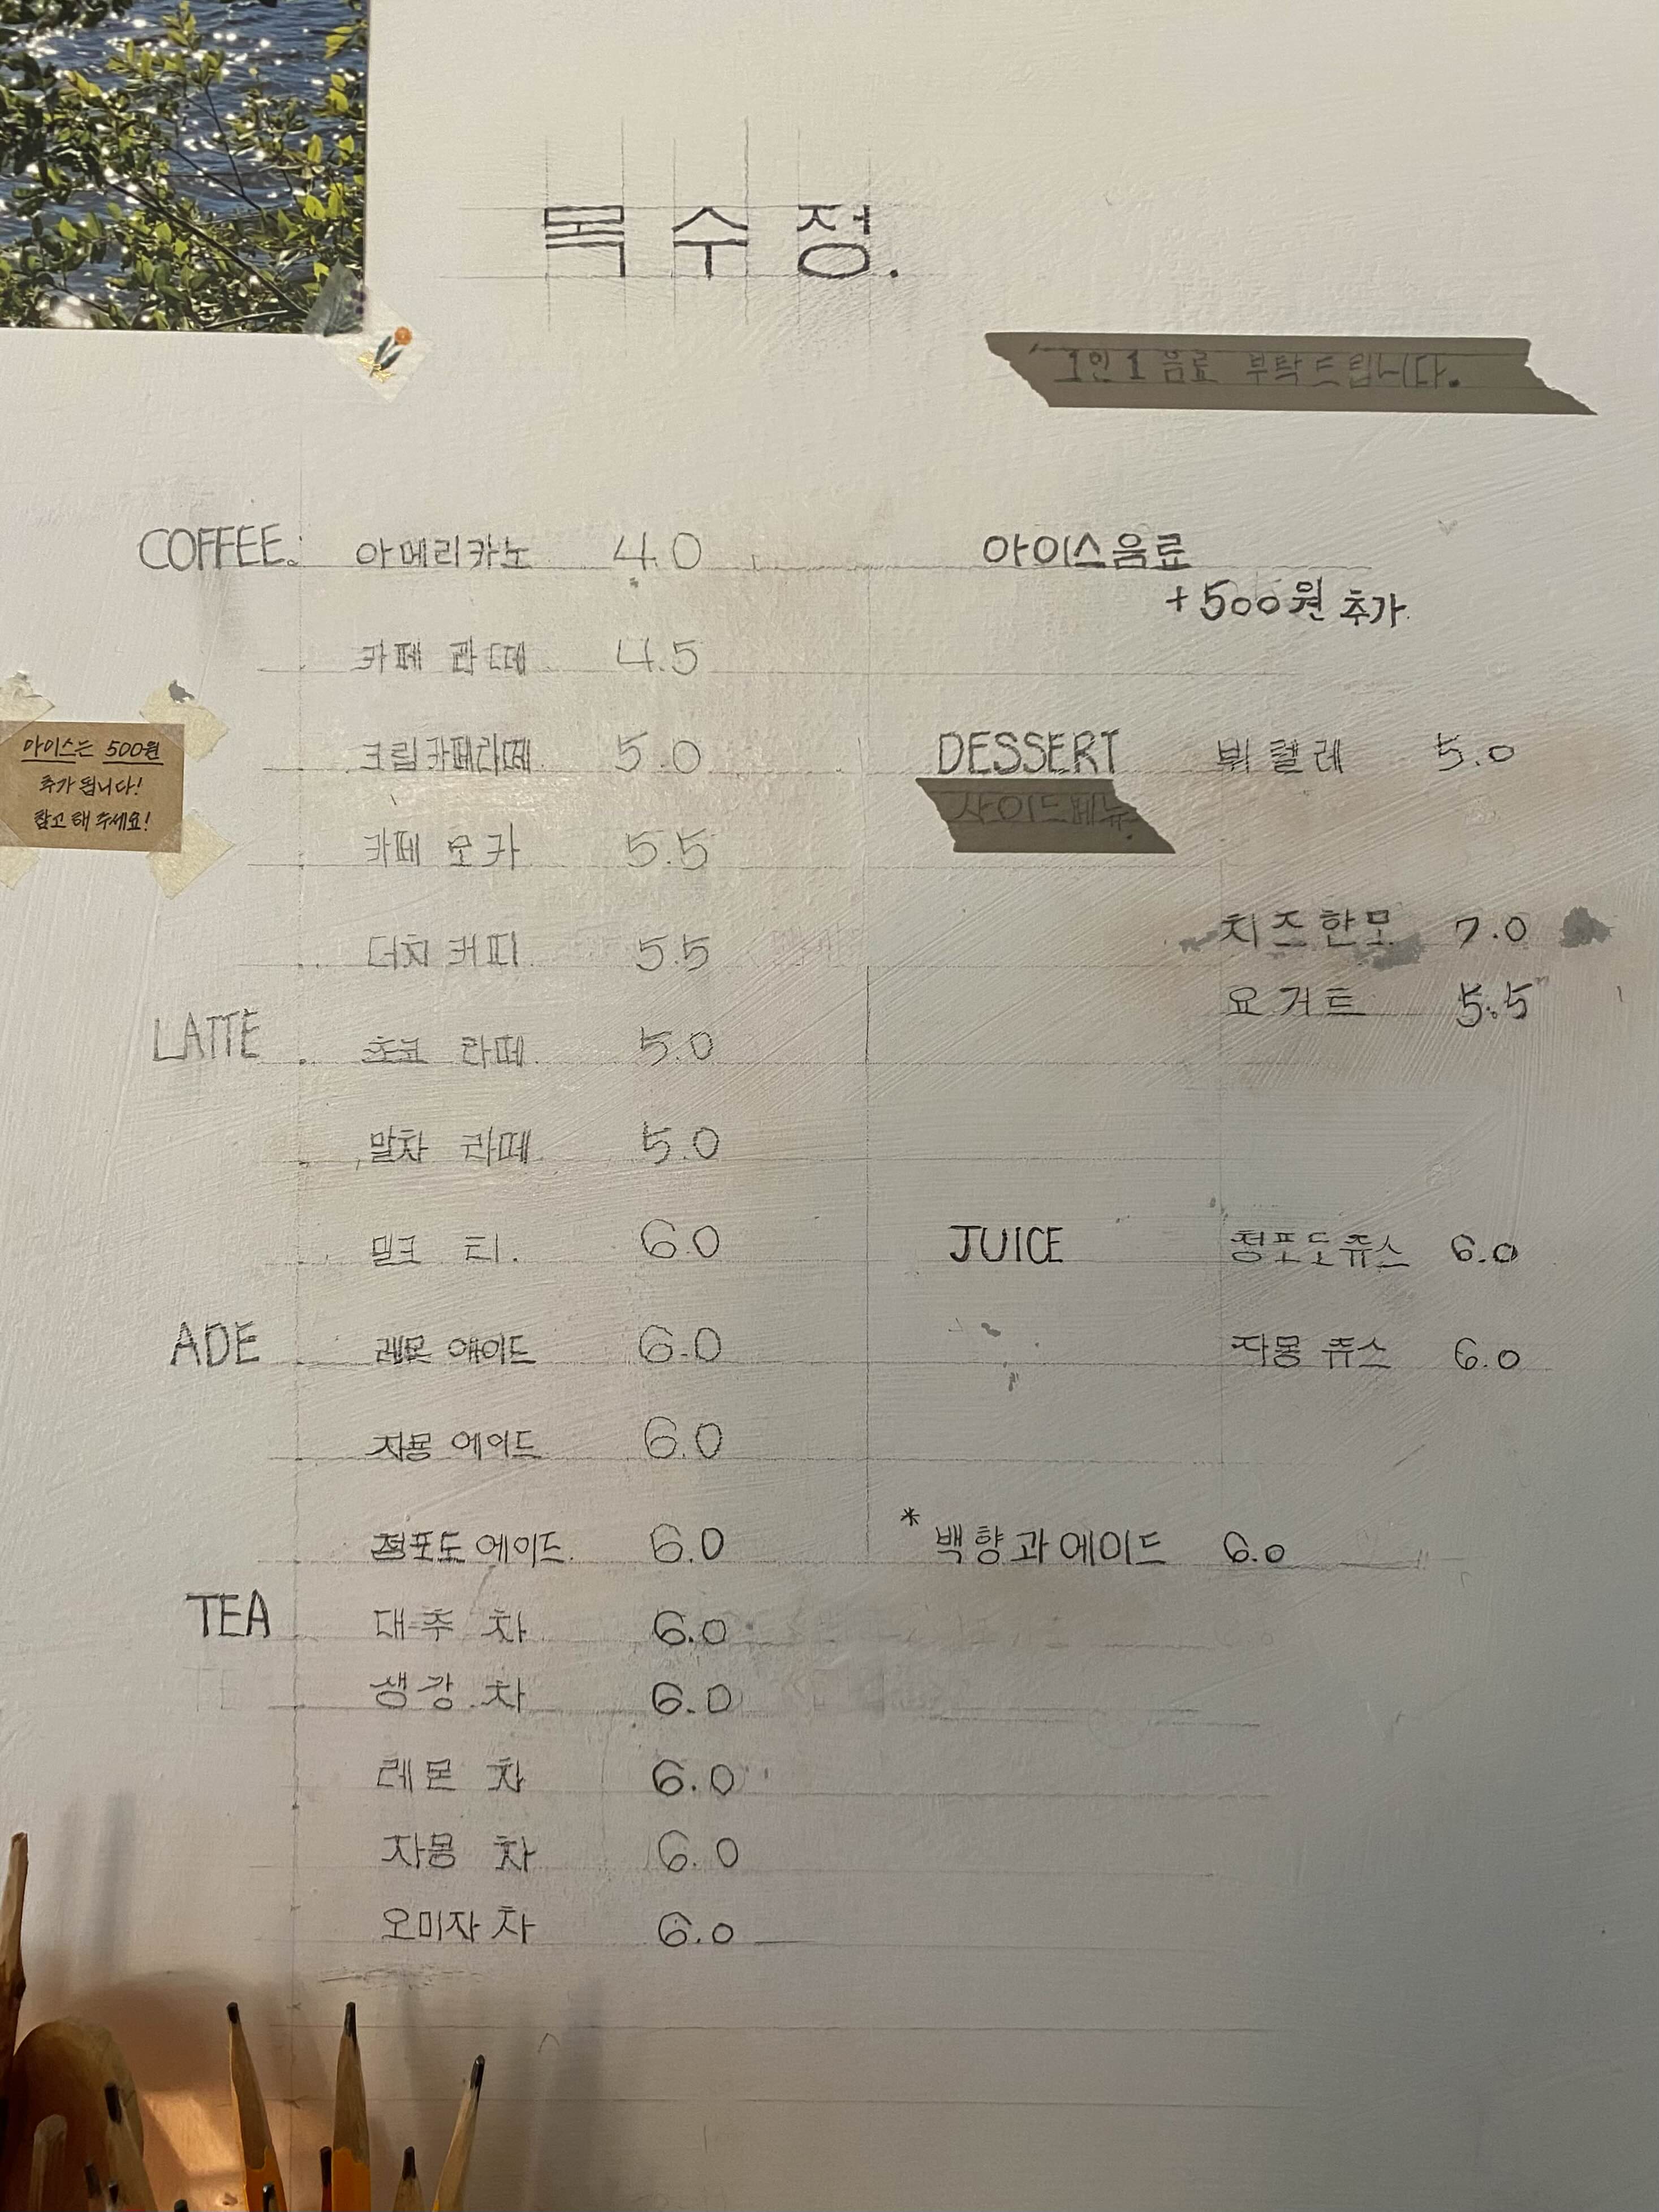 목수정.
1인 1음료 부탁드립니다.
COFFEE. 아메리카노 4.0
카페 라떼 4.5
크림카페라떼 5.0
카페 모카 5.5
더치 커피 5.5
LATTE 초코 라떼 5.0
말차 라떼 5.0
밀크 티. 6.0
ADE 레몬 에이드 6.0
자몽 에이드 6.0
청포도 에이드 6.0
TEA 대추 차 6.0
생강 차 6.0
레몬 차 6.0
자몽 차 6.0
오미자 차 6.0
아이스음료
+500원 추가
DESSERT 뷔렐레 5.0
사이드메뉴
치즈한모 7.0
요거트 5.5
JUICE 청포도쥬스 6.0
자몽 쥬스 6.0
* 백향과에이드 6.0
아이스는 500원
추가 됩니다!
참고해 주세요!